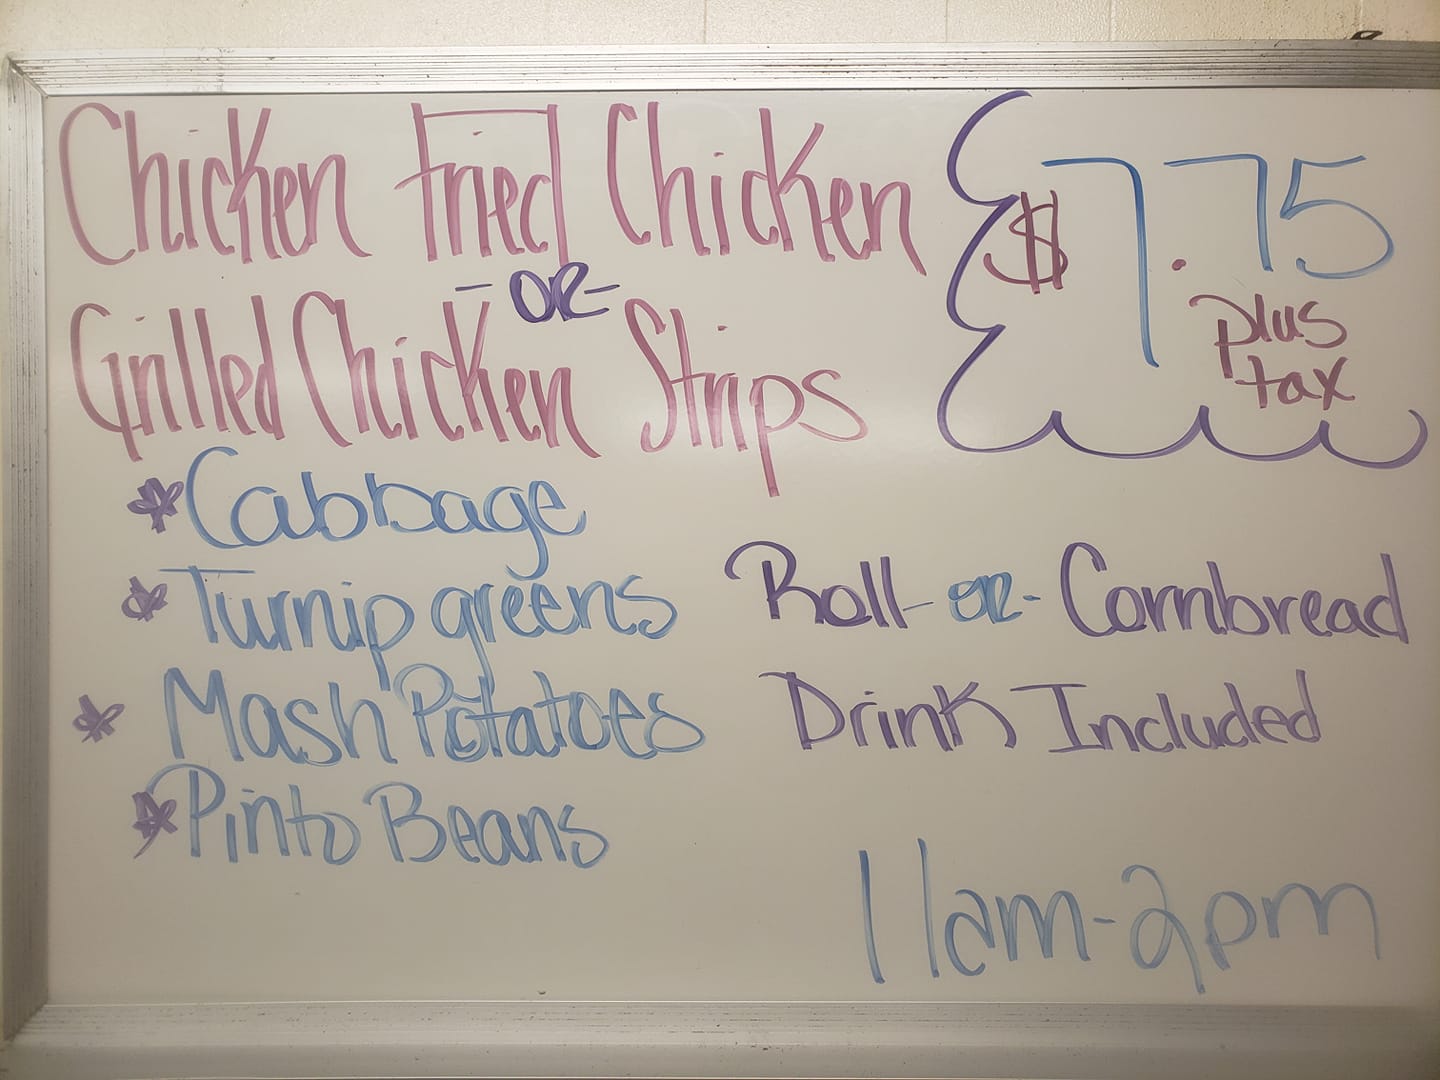 Chicken Fried Chicken
-OR-
Grilled Chicken Strips
$7.75
plus
tax
*Cabbage
*Turnip greens
*Mash Potatoes
*Pinto Beans
Roll-OR-Cornbread
Drink Included
11am-2pm